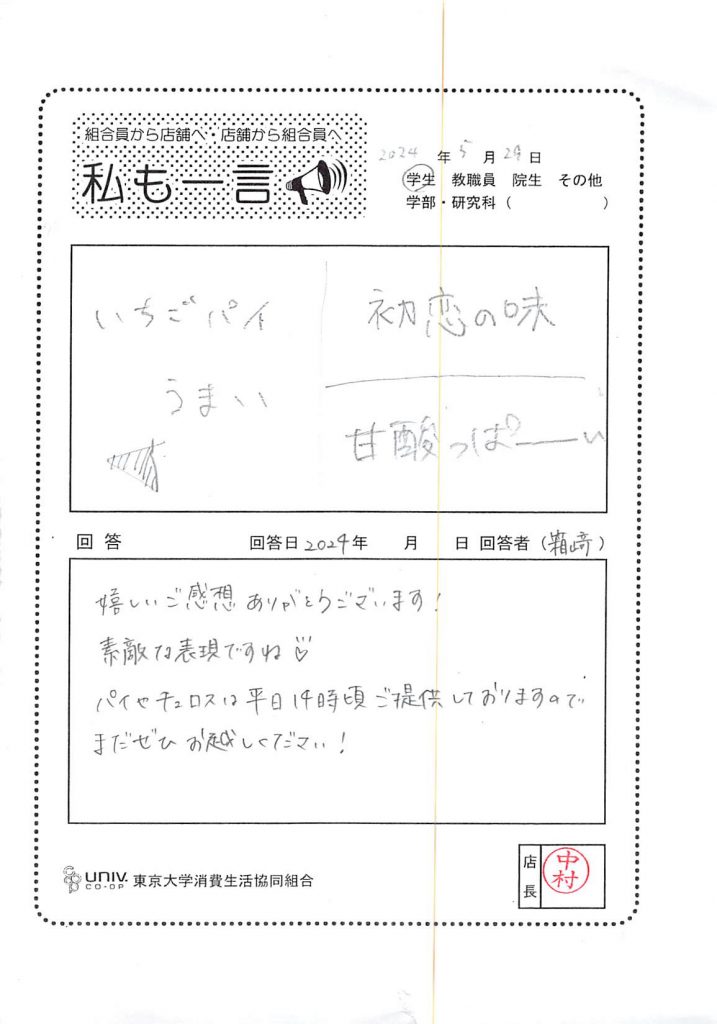 組合員から店舗へ・店舗から組合員へ
私も一言
2024 年 5 月 29 日
学生 教職員 院生 その他
学部・研究科 ( )
いちごパイ
うまい
初恋の味
甘酸っぱーーい
回答 回答日 2024年 月 日 回答者 (箱崎)
嬉しいご感想ありがとうございます!
素敵な表現ですね♡
パイやチュロスは平日14時頃ご提供しておりますので
まだぜひお越しください!
UNIV.
CO-OP
東京大学消費生活協同組合
店長
中村